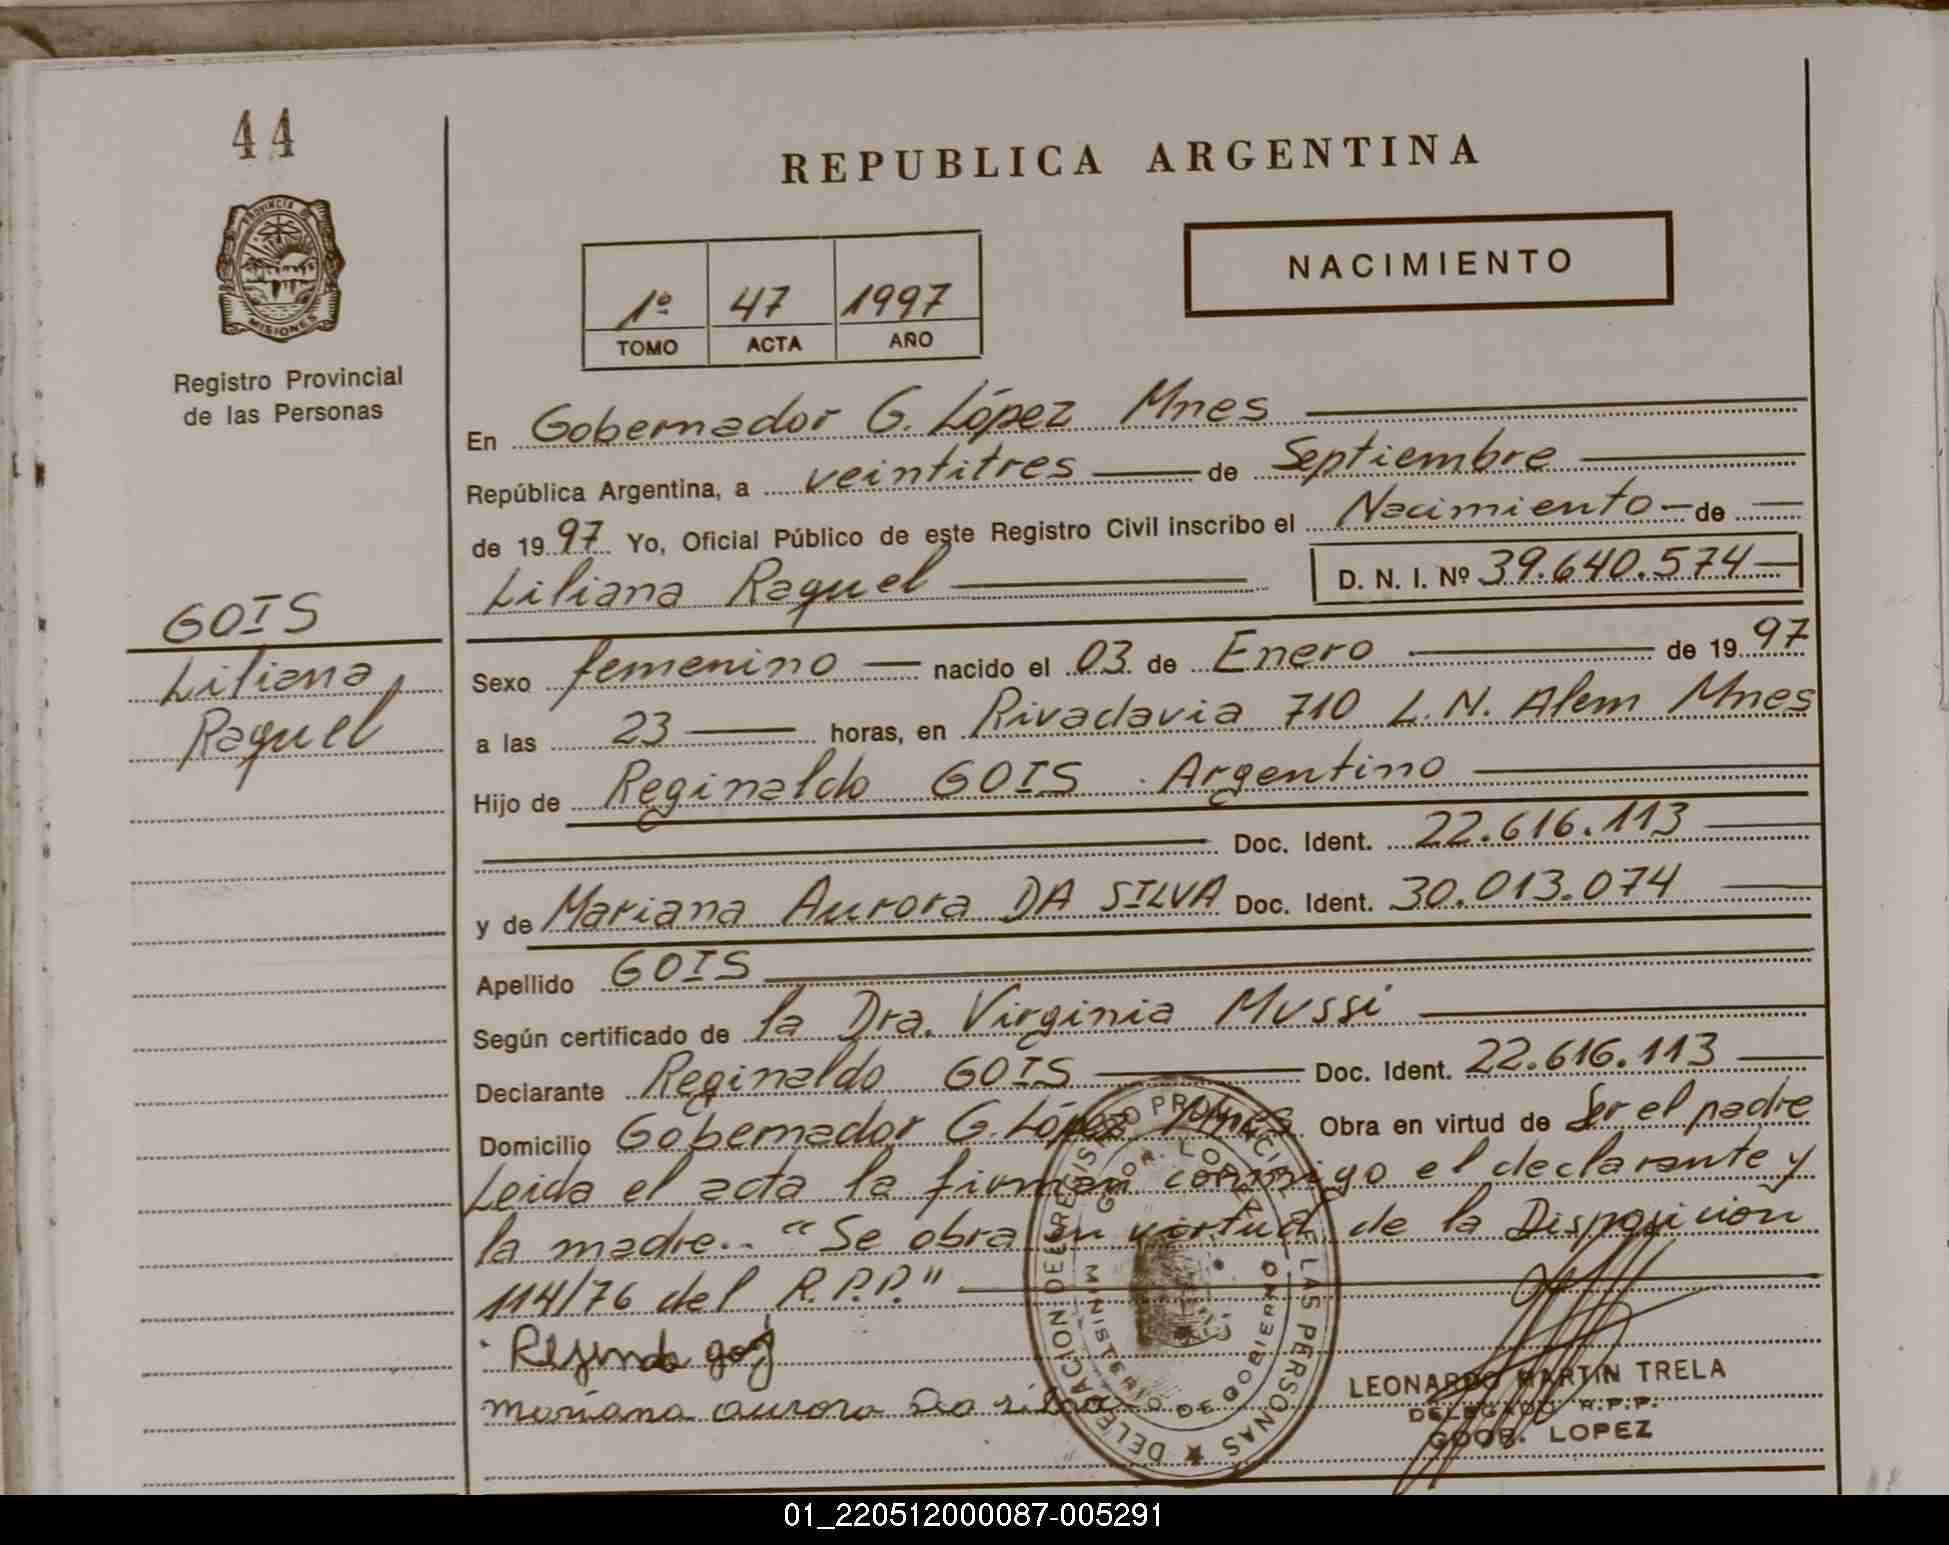 44
PROVINCIA DE
MISIONES
Registro Provincial
de las Personas
GOIS
Liliana
Raquel
REPUBLICA ARGENTINA
NACIMIENTO
1º 47 1997
TOMO ACTA AÑO
En Gobernador G. López Mnes
República Argentina, a veintitres de Septiembre
de 1997 Yo, Oficial Público de este Registro Civil inscribo el Nacimiento de
Liliana Raquel D. N. I. Nº 39.640.574
Sexo femenino nacido el 03 de Enero de 1997
a las 23 horas, en Rivadavia 710 L. N. Alem Mnes
Hijo de Reginaldo GOIS Argentino
Doc. Ident. 22.616.113
y de Mariana Aurora DA SILVA Doc. Ident. 30.013.074
Apellido GOIS
Según certificado de la Dra. Virginia Mussi
Declarante Reginaldo GOIS Doc. Ident. 22.616.113
Domicilio Gobernador G. López Mnes Obra en virtud de Ser el padre
Leida el acta la firman conmigo el declarante y
la madre.. "Se obra en virtud de la Disposicion
114/76 del R.P.P."
mariana aurora Da silva
DELEGACION DEL REGISTRO PROVINCIAL DE LAS PERSONAS
GDOR. LOPEZ
MINISTERIO DE GOBIERNO
LEONARDO MARTIN TRELA
DELEGADO R.P.P.
GDOR. LOPEZ
01_220512000087-005291